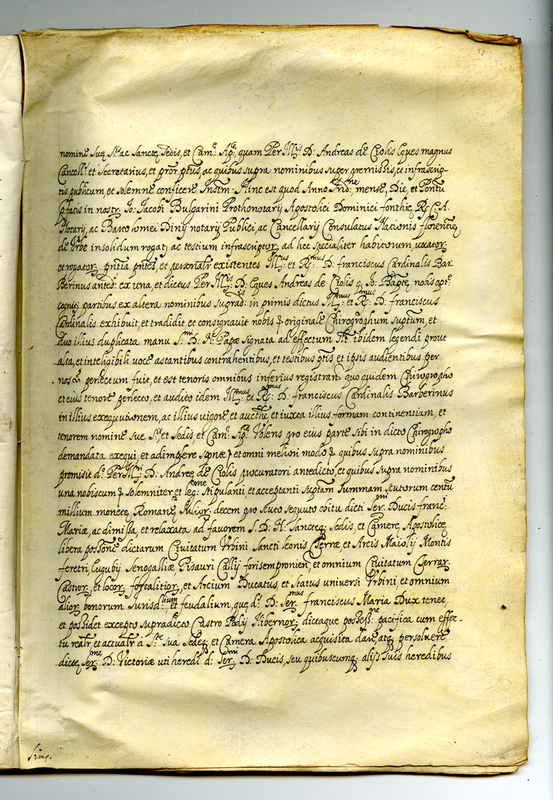 nomine Suę Stis ac Sanctę Sedis, et Camę Apcę quam Per Illris D: Andreas de Ciolis Eques magnus
Cancells et Secretarius, et pror ptus ac quibus supra nominibus super premissis, et infrascrip-
tis publicum, et solemne conficere Instm: Hinc est quod Anno mense, Die, et Pontu
pttis in nostr Jo: Jacobi Bulgarini Prothonotarij Apostolici Dominici fonthie Rs: C: A:
Notarij, ac Bartolomei Dinij notarij Publici, ac Cancellarij Consulatus Nationis florentię
de Urbe insolidum rogat, ac testium infrascriptor ad hęc specialiter habitorum, vocator
et rogator, pntia pntes, et personalr existentes Illmus et Rmus D: franciscus Cardinalis Bar
Berinus antes: ex una, et dictus Per Illris D: Eques Andreas de Ciolis q. Jo: Baptę, nobis opte
cogniti partibus ex altera nominibus in primis dictus Illmus et Rmus D: franciscus
Cardinalis exhibuit, et tradidit et consignavit nobis originale Chirographum suptum, et
duo illius duplicata manu Smi D: N: Papę signata ad effectum illud ibidem legendi prove
alta, et inteligibili voce astantibus contrahentibus, et testibus ptis et ipsis audientibus per
nos perlectum fuit, et est tenoris omnibus inferius registran quo quidem Chirographo
et eius tenore perlecto, et audito idem Illmus et Rmus D: franciscus Cardinalis Barberinus
in illius exequutionem, ac illius vigore et auctte, et iuxta illius formam continentiam, et
tenorem nomine Suę Stis et Sedis, et Camę Apcę Volens pro eius parte sibi in dicto Chirographo
demandata exequi, et adimpere sponte et omni meliori modo quibus supra nominibus
promisit do Per Illri D: Andreę de Ciolis procuratori antedicto, et quibus supra nominibus
una nobiscum solemniter et leg: stipulanti et acceptanti suptam summam scutorum centu
millium monetę Romanę Iulior decem pro scuto sequuto obitu dicti Sermi Ducis franc:
Marię, ac dimissa, et relaxata ad favorem S: D: N: Sanctę Sedis, et Camerę Apostolicę
libera possone dictarum Civitatum Urbini Sancti Leonis Terrę, et Arcis Maiolij Montis
feretri Eugubij Senogallię Pisauri Callij forisempronien: et omnium Civitatum Terrar,
Castror, et locor, fortalitior, et Arcium Ducatus, et Status universi Urbini et omnium
alior bonorum Iurisdtium et feudalium, quę ds: D: Sermus franciscus Maria Dux tenet
et possidet excepto supradicto Castro Podij Hibernor, dictaque possesne pacifica cum effec-
tu realr et actualr a Ste Sua Sede, et Camera Apostolica acquisita dare, atq persolvere
dictę Sermę D: Victorię uti heredi d: Sermi D: Ducis, seu quibuscumq alijs suis heredibus
sive